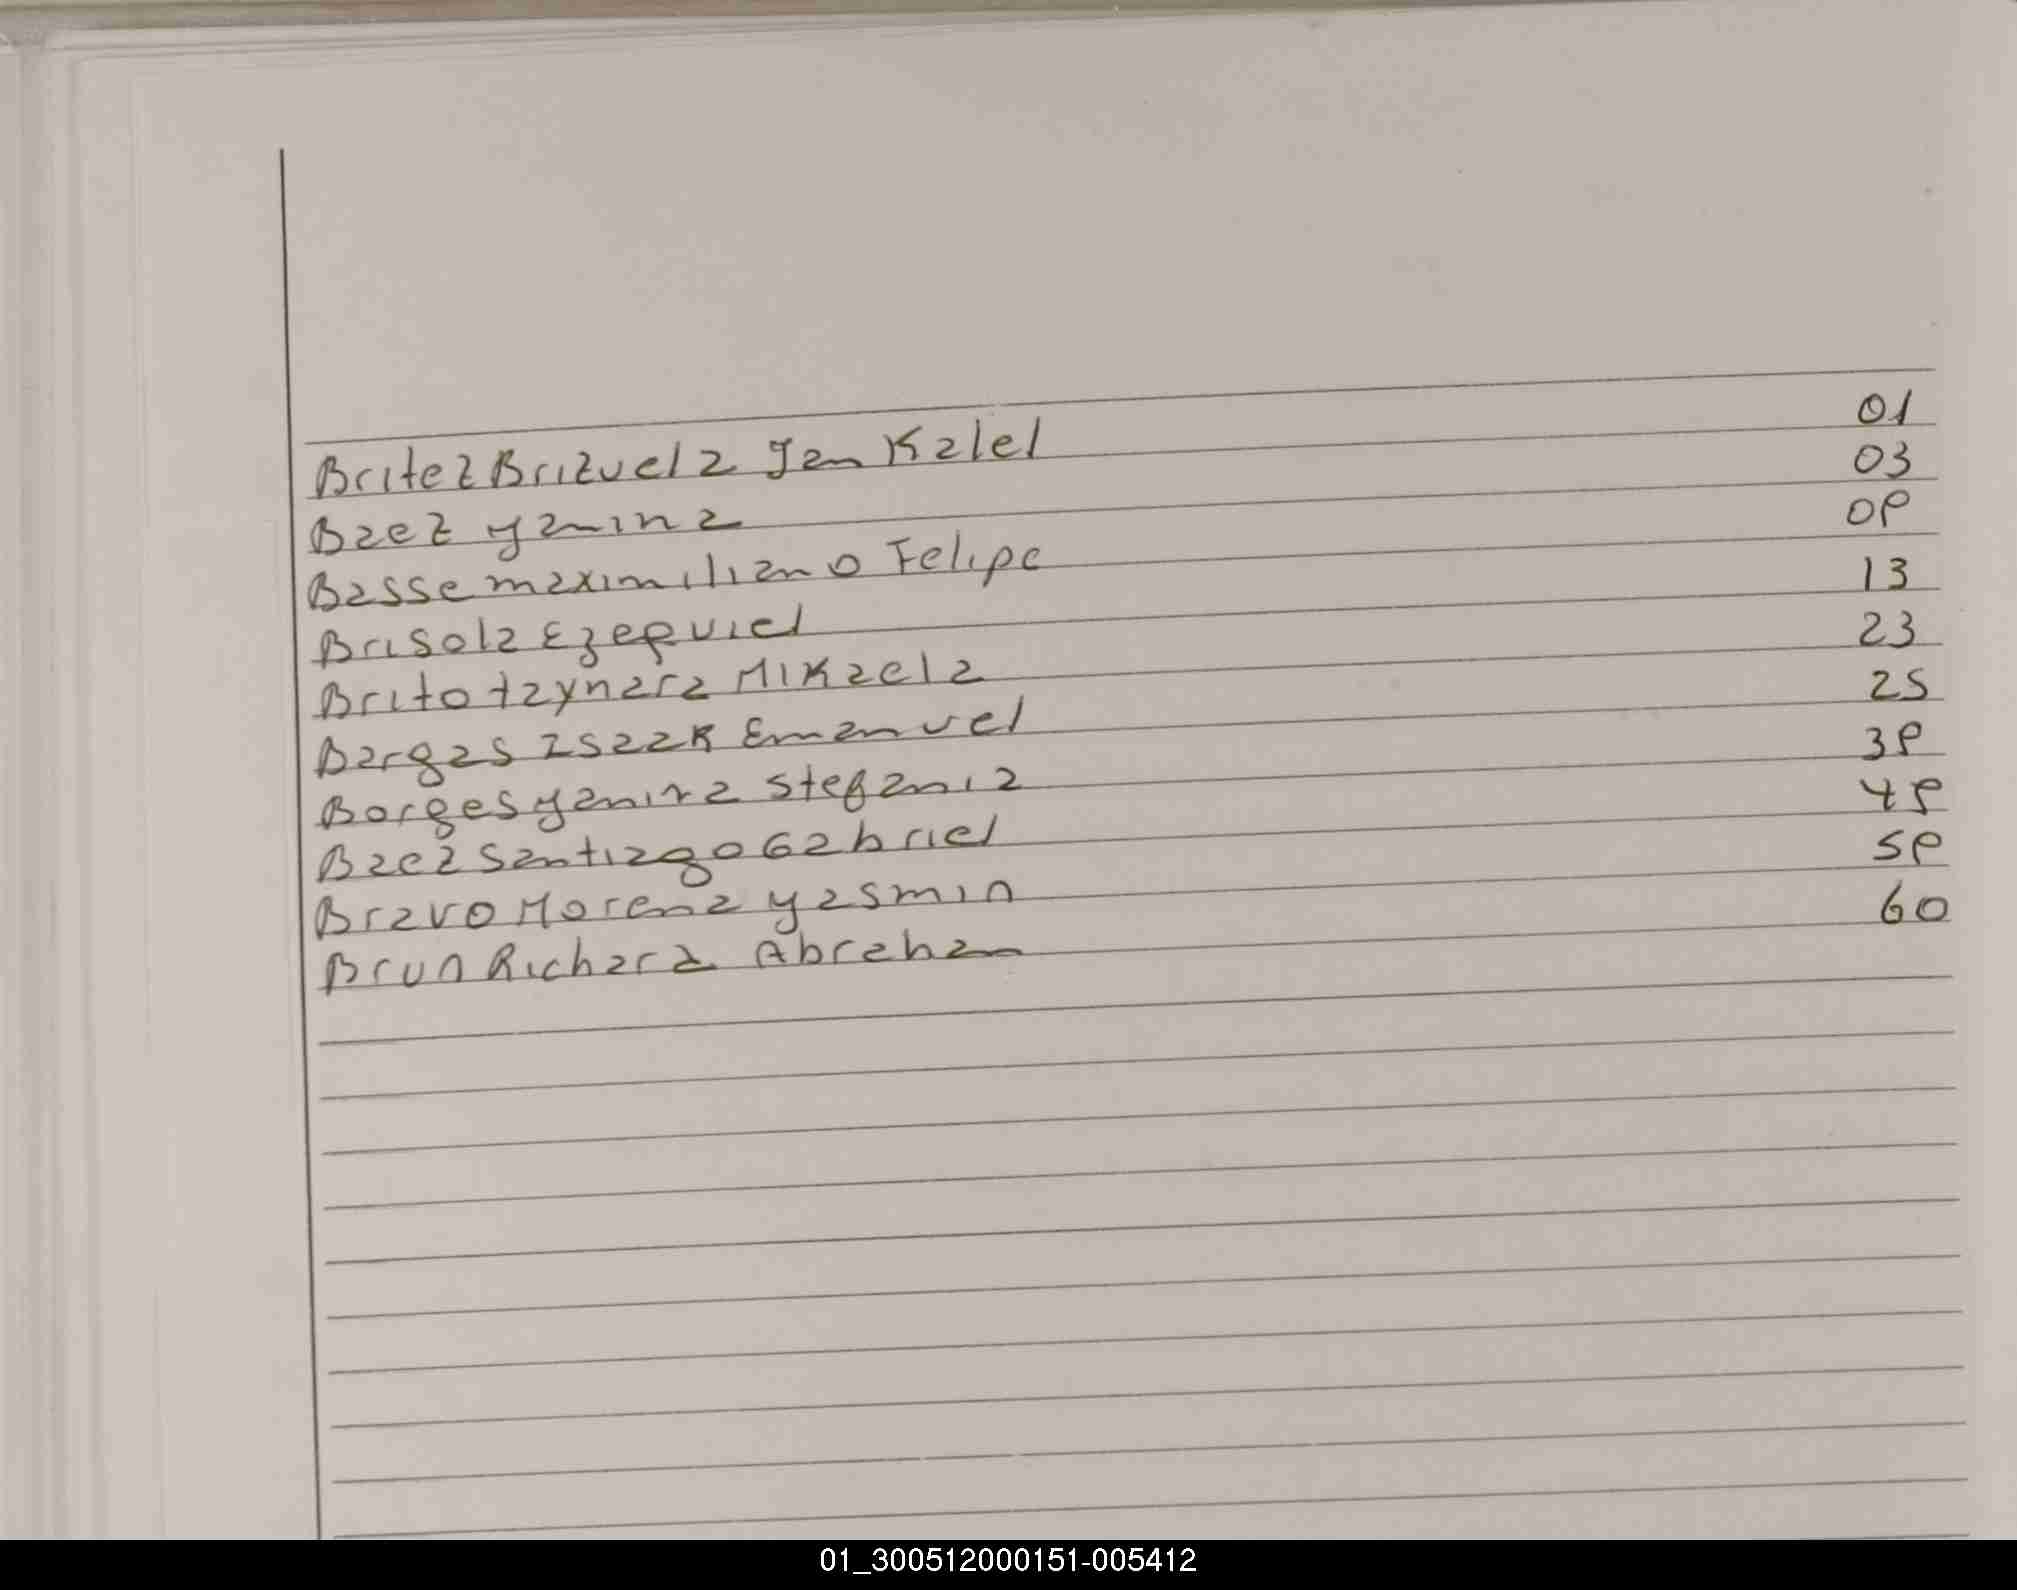 Britez Brizuela Jan Kalel 01
Baez yanina 03
Basse maximiliano Felipe 09
Brisola Ezequiel 13
Brito taynara Mikaela 23
Bargas Isaak Emanuel 25
Borges yanira Stefania 39
Baez Santiago Gabriel 49
Bravo Morena yasmin 59
Brun Richard Abraham 60
01_300512000151-005412